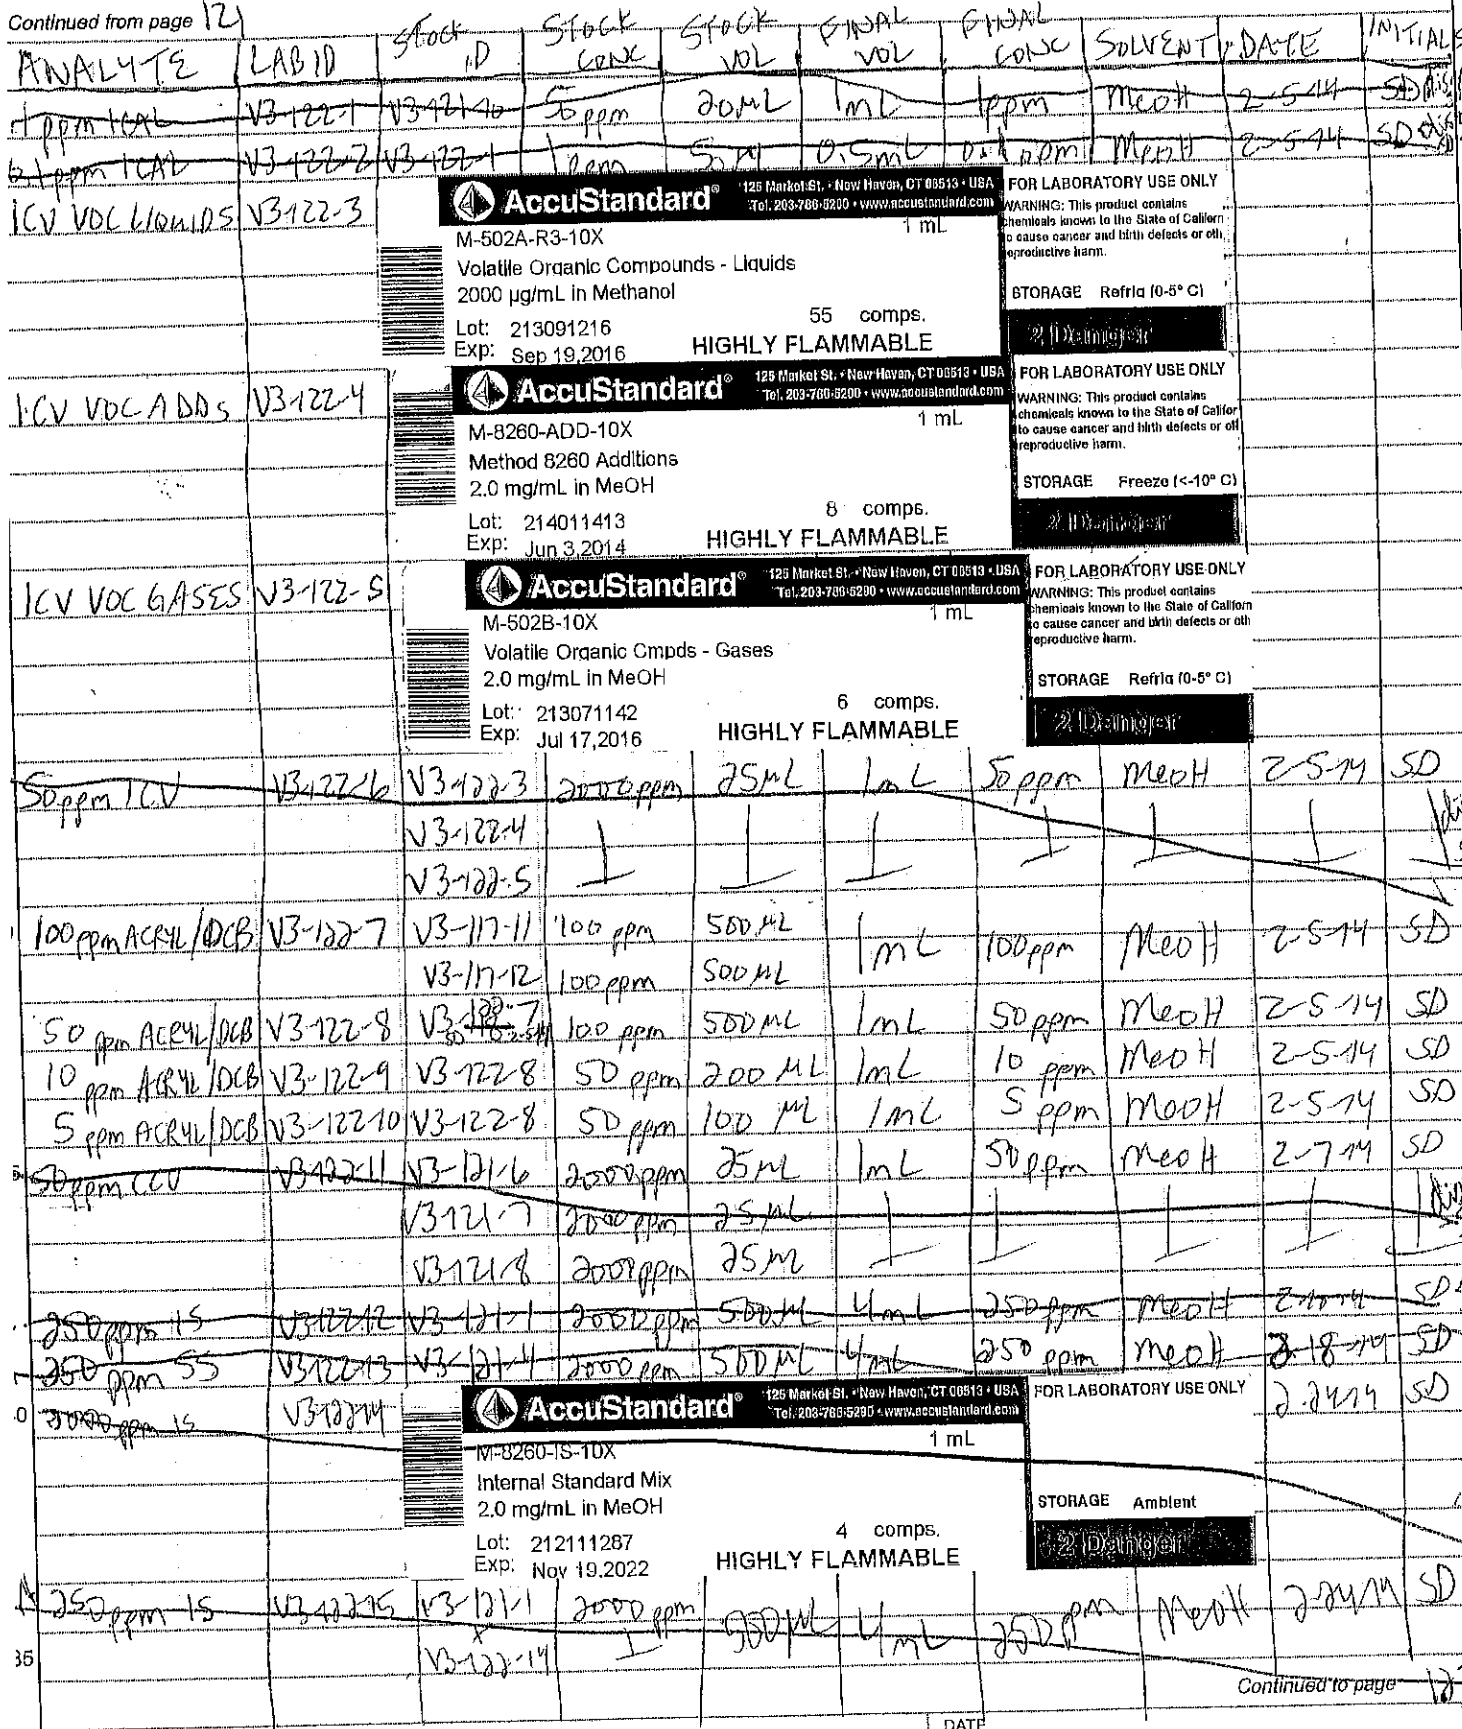 Continued from page 121
ANALYTE LAB ID Stock ID STOCK CONC STOCK VOL FINAL VOL FINAL CONC SOLVENT DATE INITIALS
1 ppm ICAL V3-122-1 V3-121-10 50 ppm 20 ML 1 mL 1 ppm MeOH 2-5-14 SD
0.1 ppm ICAL V3-122-2 V3-122-1 1 ppm 50 Ml 0.5 mL 0.1 ppm MeOH 2-5-14 SD
ICV VOC LIQUIDS V3-122-3
AccuStandard® 125 Market St. • New Haven, CT 06513 • USA
Tel. 203-786-5290 • www.accustandard.com
M-502A-R3-10X 1 mL
Volatile Organic Compounds - Liquids
2000 µg/mL in Methanol
55 comps.
Lot: 213091216
Exp: Sep 19,2016 HIGHLY FLAMMABLE
FOR LABORATORY USE ONLY
WARNING: This product contains
chemicals known to the State of Californ
o cause cancer and birth defects or oth
eproductive harm.
STORAGE Refrig (0-5° C)
2 Danger
ICV VOC ADDs V3-122-4
AccuStandard® 125 Market St. • New Haven, CT 06513 • USA
Tel. 203-786-5290 • www.accustandard.com
M-8260-ADD-10X 1 mL
Method 8260 Additions
2.0 mg/mL in MeOH
8 comps.
Lot: 214011413
Exp: Jun 3,2014 HIGHLY FLAMMABLE
FOR LABORATORY USE ONLY
WARNING: This product contains
chemicals known to the State of Califor
to cause cancer and birth defects or ot
reproductive harm.
STORAGE Freeze (<-10° C)
2 Danger
ICV VOC GASES V3-122-5
AccuStandard® 125 Market St. • New Haven, CT 06513 • USA
Tel. 203-786-5290 • www.accustandard.com
M-502B-10X 1 mL
Volatile Organic Cmpds - Gases
2.0 mg/mL in MeOH
6 comps.
Lot: 213071142
Exp: Jul 17,2016 HIGHLY FLAMMABLE
FOR LABORATORY USE ONLY
WARNING: This product contains
hemicals known to the State of Californ
o cause cancer and birth defects or oth
eproductive harm.
STORAGE Refrig (0-5° C)
2 Danger
50 ppm ICV V3-122-6 V3-122-3 2000 ppm 25 ML 1 mL 50 ppm MeOH 2-5-14 SD
V3-122-4
V3-122-5
100 ppm ACRYL/DCB V3-122-7 V3-117-11 100 ppm 500 ML 1 mL 100 ppm MeOH 2-5-14 SD
V3-117-12 100 ppm 500 ML
50 ppm ACRYL/DCB V3-122-8 V3-122-7 100 ppm 500 ML 1 mL 50 ppm MeOH 2-5-14 SD
10 ppm ACRYL/DCB V3-122-9 V3-122-8 50 ppm 200 ML 1 mL 10 ppm MeOH 2-5-14 SD
5 ppm ACRYL/DCB V3-122-10 V3-122-8 50 ppm 100 ML 1 mL 5 ppm MeOH 2-5-14 SD
50 ppm CCV V3-122-11 V3-121-6 2000 ppm 25 ML 1 mL 50 ppm MeOH 2-7-14 SD
V3-121-7 2000 ppm 25 ML
V3-121-8 2000 ppm 25 ML
250 ppm IS V3-122-12 V3-121-1 2000 ppm 500 ML 4 mL 250 ppm MeOH SD
250 ppm SS V3-122-13 V3-121-4 2000 ppm 500 ML 4 mL 250 ppm MeOH 2-18-14 SD
2000 ppm IS V3-122-14 2-24-14 SD
AccuStandard® 125 Market St. • New Haven, CT 06513 • USA
Tel. 203-786-5290 • www.accustandard.com
M-8260-IS-10X 1 mL
Internal Standard Mix
2.0 mg/mL in MeOH
4 comps.
Lot: 212111287
Exp: Nov 19,2022 HIGHLY FLAMMABLE
FOR LABORATORY USE ONLY
STORAGE Ambient
2 Danger
250 ppm IS V3-122-15 V3-121-1 2000 ppm 500 ML 4 mL 250 ppm MeOH 2-24-14 SD
V3-122-14
35
Continued to page
DATE